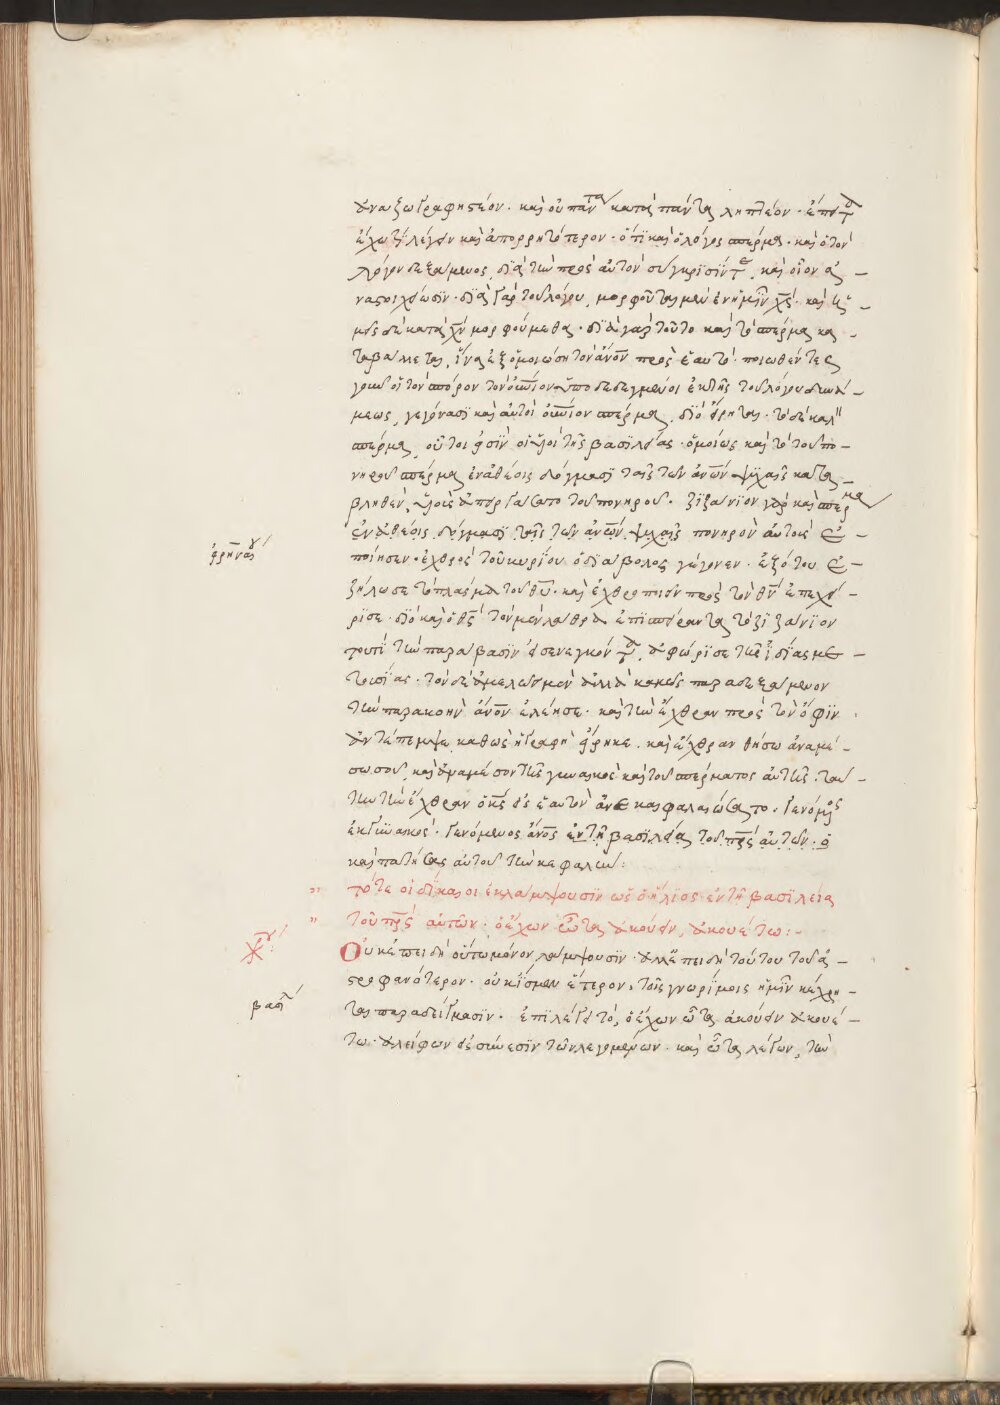 ἀναζωγραφητέον. καὶ οὐ πάντα κατὰ πάντα ληπτέον. ἐπεὶ
ἔχω τί λέγειν καὶ ἀπορρητότερον. ὅτι καὶ ὁ λόγος σπέρμα. καὶ ὁ τὸν
λόγον δεξάμενος, διὰ τὴν πρὸς αὐτὸν σύγκρισίν τε, καὶ οἷον ἀ
ναστοιχείωσιν. διὰ γὰρ τοῦ λόγου, μορφοῦται μὲν ἐν ἡμῖν χς. καὶ ἡ
μεῖς δὲ κατὰ χν μορφούμεθα. διὰ γὰρ τοῦτο καὶ τὸ σπέρμα κα
ταβάλλεται, ἵνα ἐξομοιώσῃ τὸν ἄνον πρὸς ἑαυτό. ποιωθέντες
γοῦν οἱ τὸν σπόρον τὸν οὐνιον ὑποδεδεγμένοι ἐκ τῆς τοῦ λόγου δυνά
μεως, γεγόνασι καὶ αὐτοὶ οὐνιον σπέρμα, διὸ εἴρηται. τὸ δὲ καλὸν
σπέρμα, οὗτοι εἰσὶν οἱ υἱοὶ τῆς βασιλείας. ὁμοίως καὶ τὸ τοῦ πο
νηροῦ σπέρμα ἐν ἀθέοις δόγμασι ταῖς τῶν ἀνων ψυχαῖς κατα
βληθὲν, υἱοὺς ἀπειργάσατο τοῦ πονηροῦ. ζιζάνιον γὰρ καὶ σπέρμα
ἐν ἀθέοις δόγμασι ταῖς τῶν ἀνων ψυχαῖς πονηρὸν αὐτοὺς ἐ
εἰρηναίου
ποίησεν. ἐχθρὸς τοῦ κυρίου ὁ διάβολος γέγονεν. ἐξ ὅτου ἐ
ζήλωσε τὸ πλάσμα τοῦ θυ. καὶ ἐχθροποιεῖν πρὸς τὸν θν ἐπεχεί
ρισε. διὸ καὶ ὁ θς τὸν μὲν λάθρα ἐπισπείραντα τὸ ζιζάνιον
τουτέστι τὴν παράβασιν εἰσενεγκόντα, ἀφώρισε τῆς ἰδίας με
τουσίας. τὸν δὲ ἀμελῶς μὲν ἀλλὰ κακῶς παραδεξάμενον
τὴν παρακοὴν ἄνον ἐλέησε. καὶ τὴν ἔχθραν πρὸς τὸν ὄφιν
ἀντέπεμψε καθὼς ἡ γραφὴ εἴρηκε. καὶ ἔχθραν θήσω ἀναμέ
σω σου, καὶ ἀναμέσον τῆς γυναικὸς καὶ τοῦ σπέρματος αὐτῆς. ταύ
την τὴν ἔχθραν ὁ κς εἰς ἑαυτὸν ἀνεκαιφαλαιώσατο. γενόμενος
ἐκ γυναικὸς. γενόμενος ἄνος ἐν τῇ βασιλείᾳ τοῦ πρς αὐτῶν. ὁ
καὶ πατήσας αὐτοῦ τὴν κεφαλὴν:
τότε οἱ δίκαιοι ἐκλάμψουσιν ὡς ὁ ἥλιος ἐν τῇ βασιλείᾳ
τοῦ πρς αὐτῶν. ὁ ἔχων ὦτα ἀκούειν, ἀκουέτω:-
Οὐκ ἐπειδὴ οὕτω μόνον λάμψουσιν. ἀλλ᾽ ἐπειδὴ τούτου τοῦ ἀ
στροφανότερον. οὐκ ἴσμεν ἕτερον, τοῖς γνωρίμοις ἡμῖν κέχρη
βασι
ται παραδείγμασιν. ἐπιλέγει τὸ, ὁ ἔχων ὦτα ἀκούειν ἀκουέ
τω. ἀλείφων εἰς σύνεσιν τῶν λεγομένων. καὶ ὦτα λέγων, τὴν